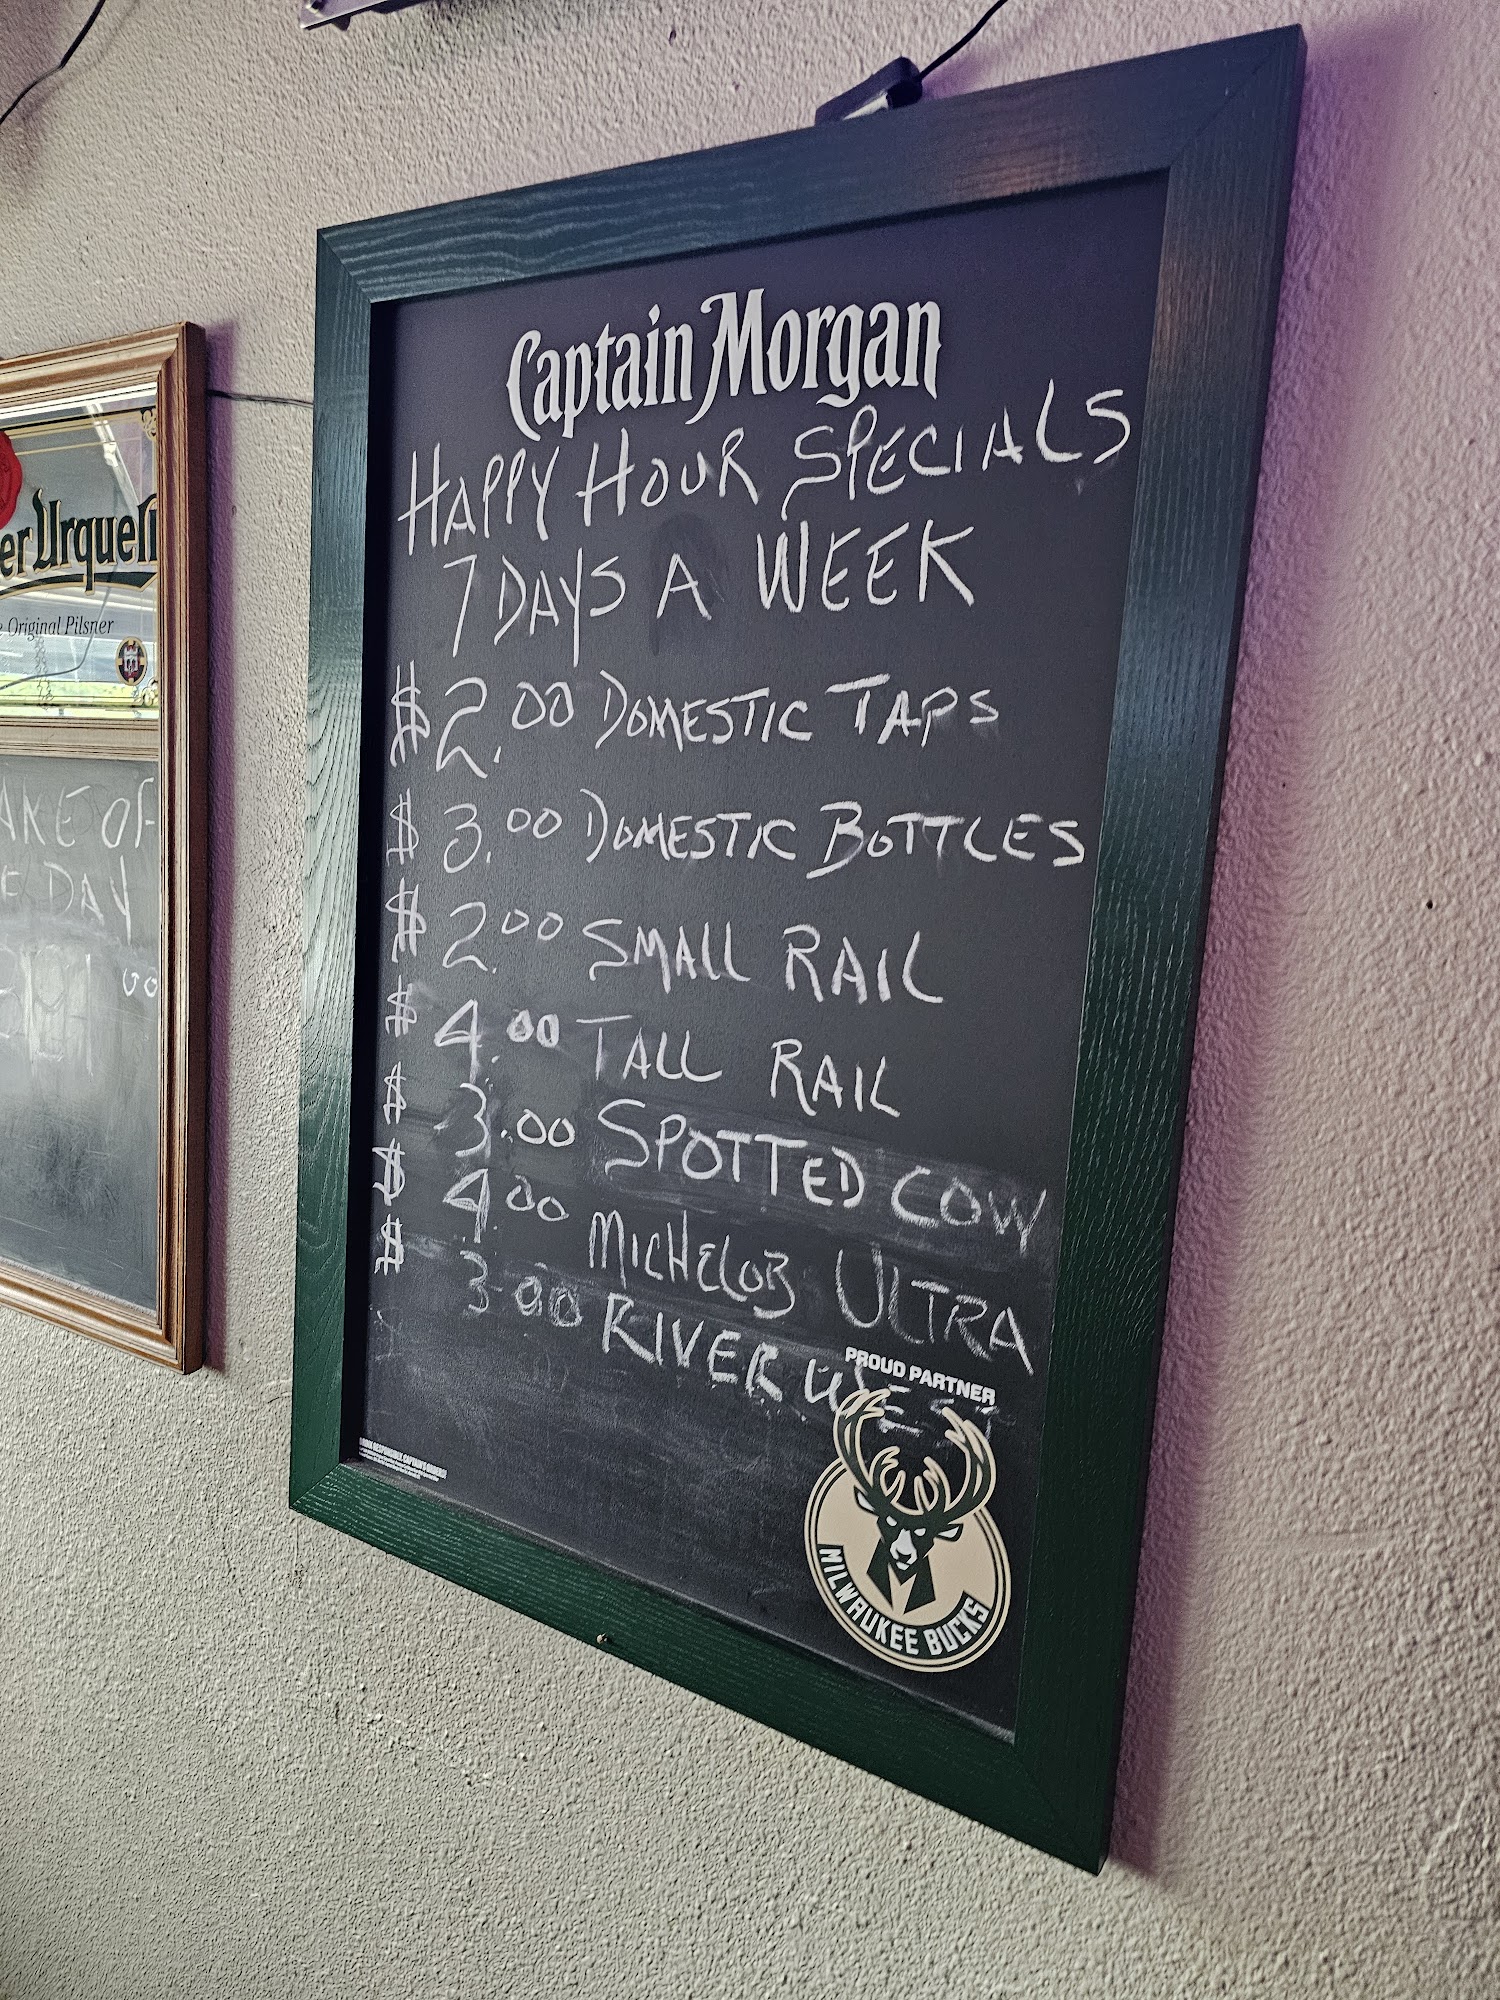 er Urquell
Original Pilsner
AKE OF
E DAY
Captain Morgan
HAPPY HOUR SPECIALS
7 DAYS A WEEK
$2.00 DOMESTIC TAPS
$3.00 DOMESTIC BOTTLES
$2.00 SMALL RAIL
$4.00 TALL RAIL
$3.00 SPOTTED COW
$4.00 MICHELOB ULTRA
$3.00 RIVER WEST
PROUD PARTNER
MILWAUKEE BUCKS